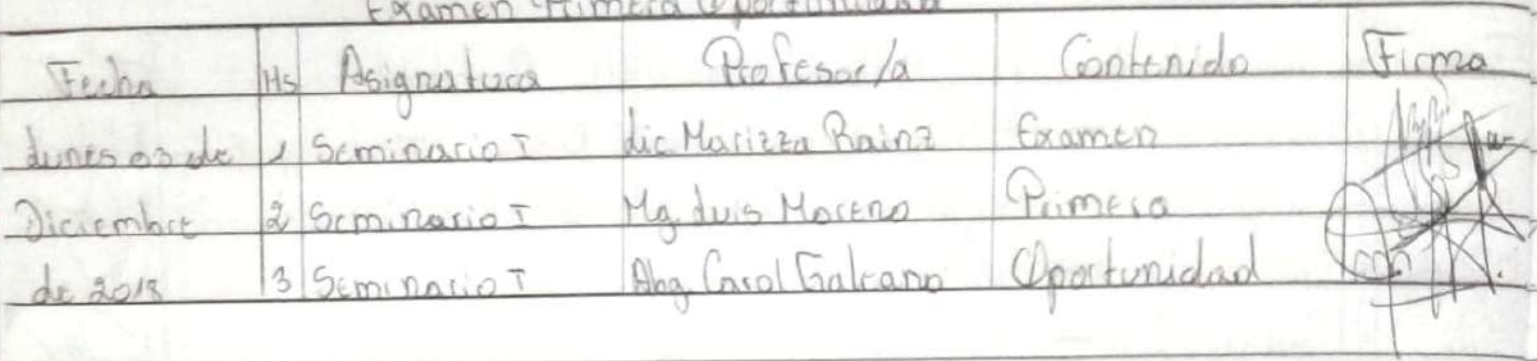 Examen Primera Oportunidad
Fecha Hs Asignatura Profesor/a Contenido Firma
Lunes 03 de 1 Seminario I Lic Marizza Rainz Examen
Diciembre 2 Seminario I Mg. Luis Moreno Primera
de 2018 3 Seminario I Abg. Carol Galeano Oportunidad